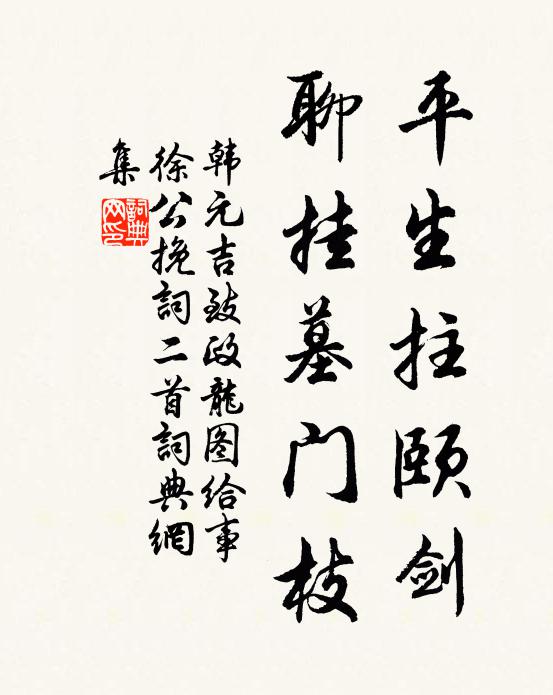 平生拄颐剑
聊挂墓门枝
韩元吉致政龙图给事
徐公挽詞二首詞典網
集
詞典网印